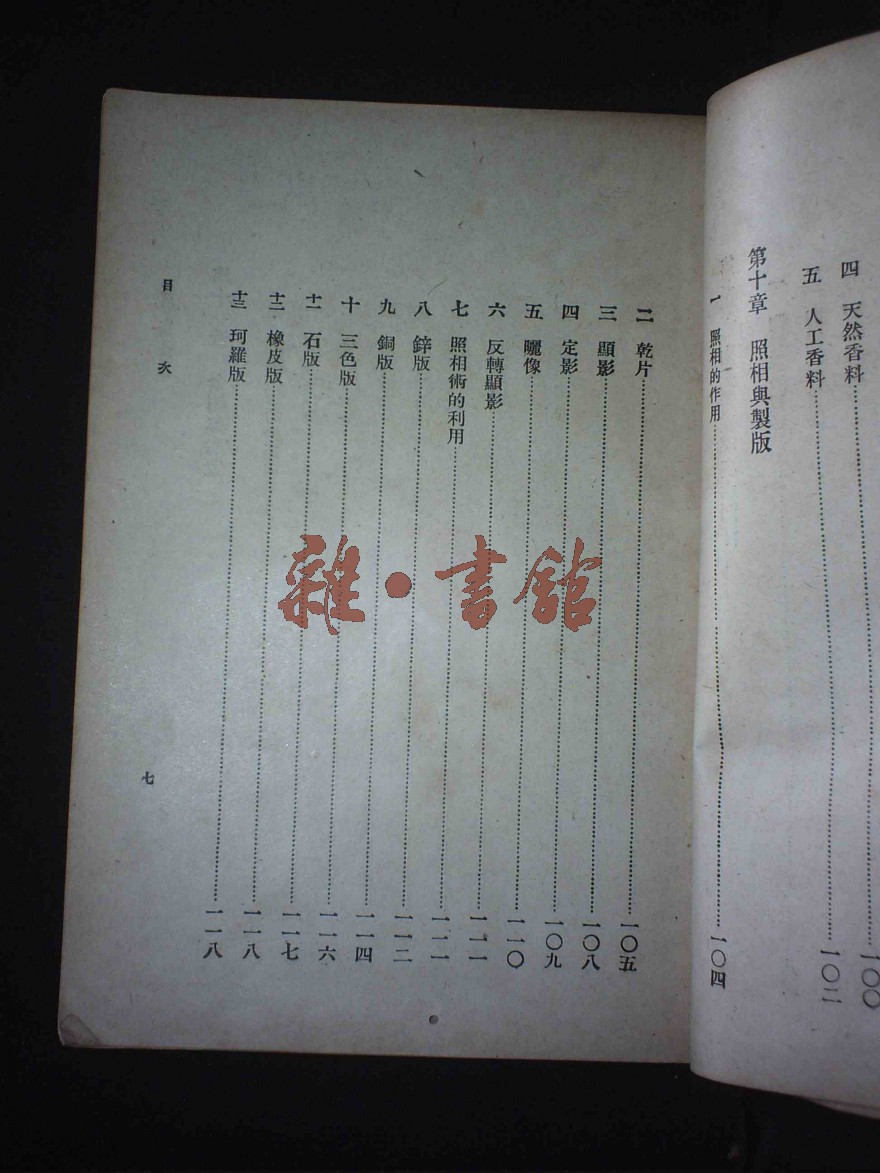 四 天然香料……一〇〇
五 人工香料……一〇二
第十章 照相與製版
一 照相的作用……一〇四
二 乾片……一〇五
三 顯影……一〇八
四 定影……一〇九
五 曬像……一一〇
六 反轉顯影……一一一
七 照相術的利用……一一一
八 鋅版……一一二
九 銅版……一一四
十 三色版……一一六
十一 石版……一一七
十二 橡皮版……一一八
十三 珂羅版……一一八
目 次
七
雜·書館